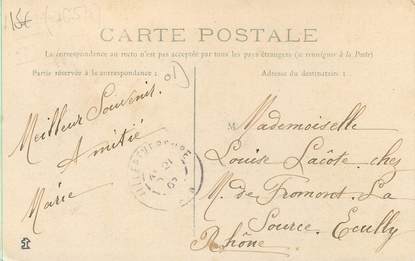 15€
CARTE POSTALE
La correspondance au recto n'est pas acceptée par tous les pays étrangers (se renseigner à la Poste)
Partie réservée à la correspondance :
Adresse du destinataire :
Meilleur Souvenir.
Amitié
Marie
M Mademoiselle
Louise Lacôte chez
M. de Fromont. La
Source. Ecully
Rhône